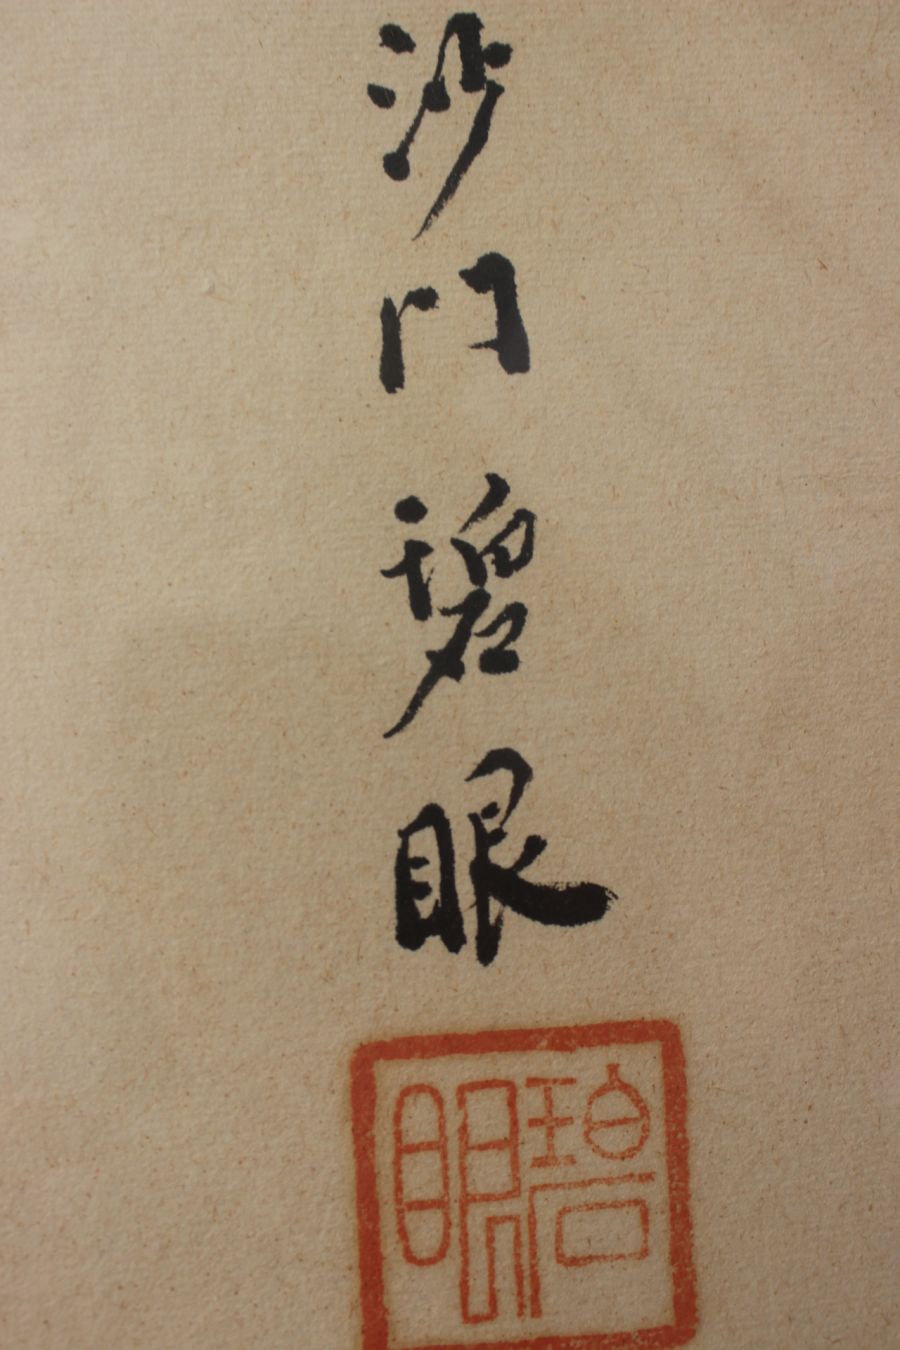 沙门碧眼
碧眼